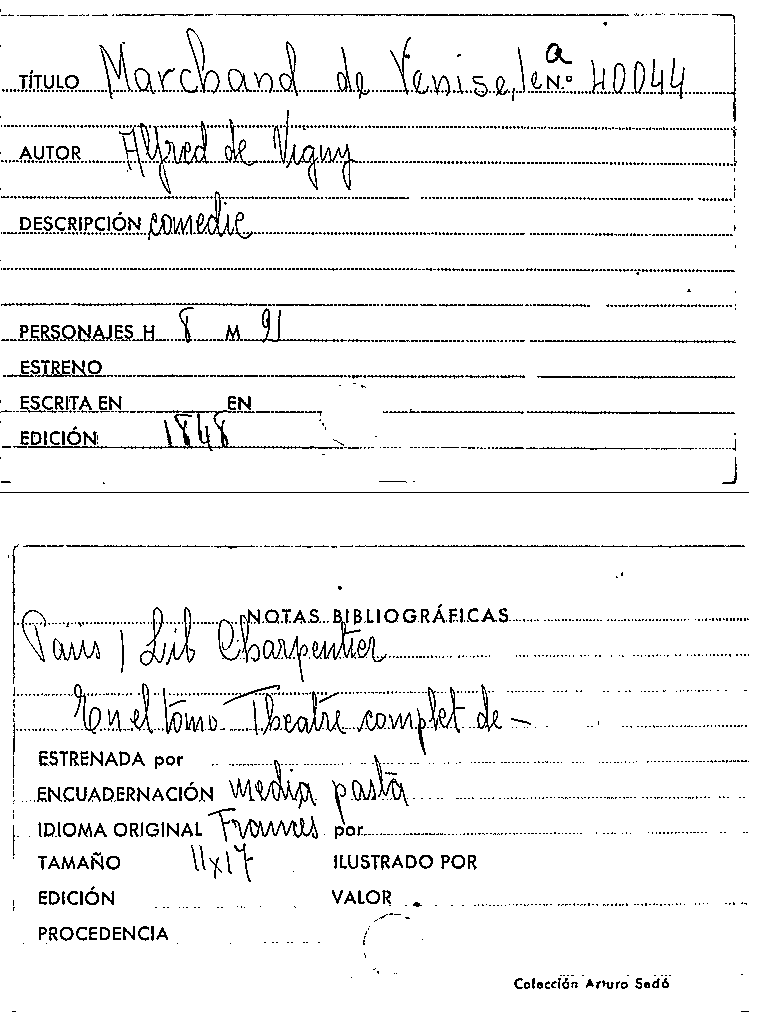 a
TÍTULO Marchand de Venise, le N.º 40044
AUTOR Alfred de Vigny
DESCRIPCIÓN comedie
PERSONAJES H 8 M 91
ESTRENO
ESCRITA EN EN
EDICIÓN 1848
NOTAS BIBLIOGRÁFICAS
Paris / Lib Charpentier
En el tomo Theatre complet de —
ESTRENADA por
ENCUADERNACIÓN media pasta
IDIOMA ORIGINAL Frances por
TAMAÑO 11x17 ILUSTRADO POR
EDICIÓN VALOR
PROCEDENCIA
Colección Arturo Sedó